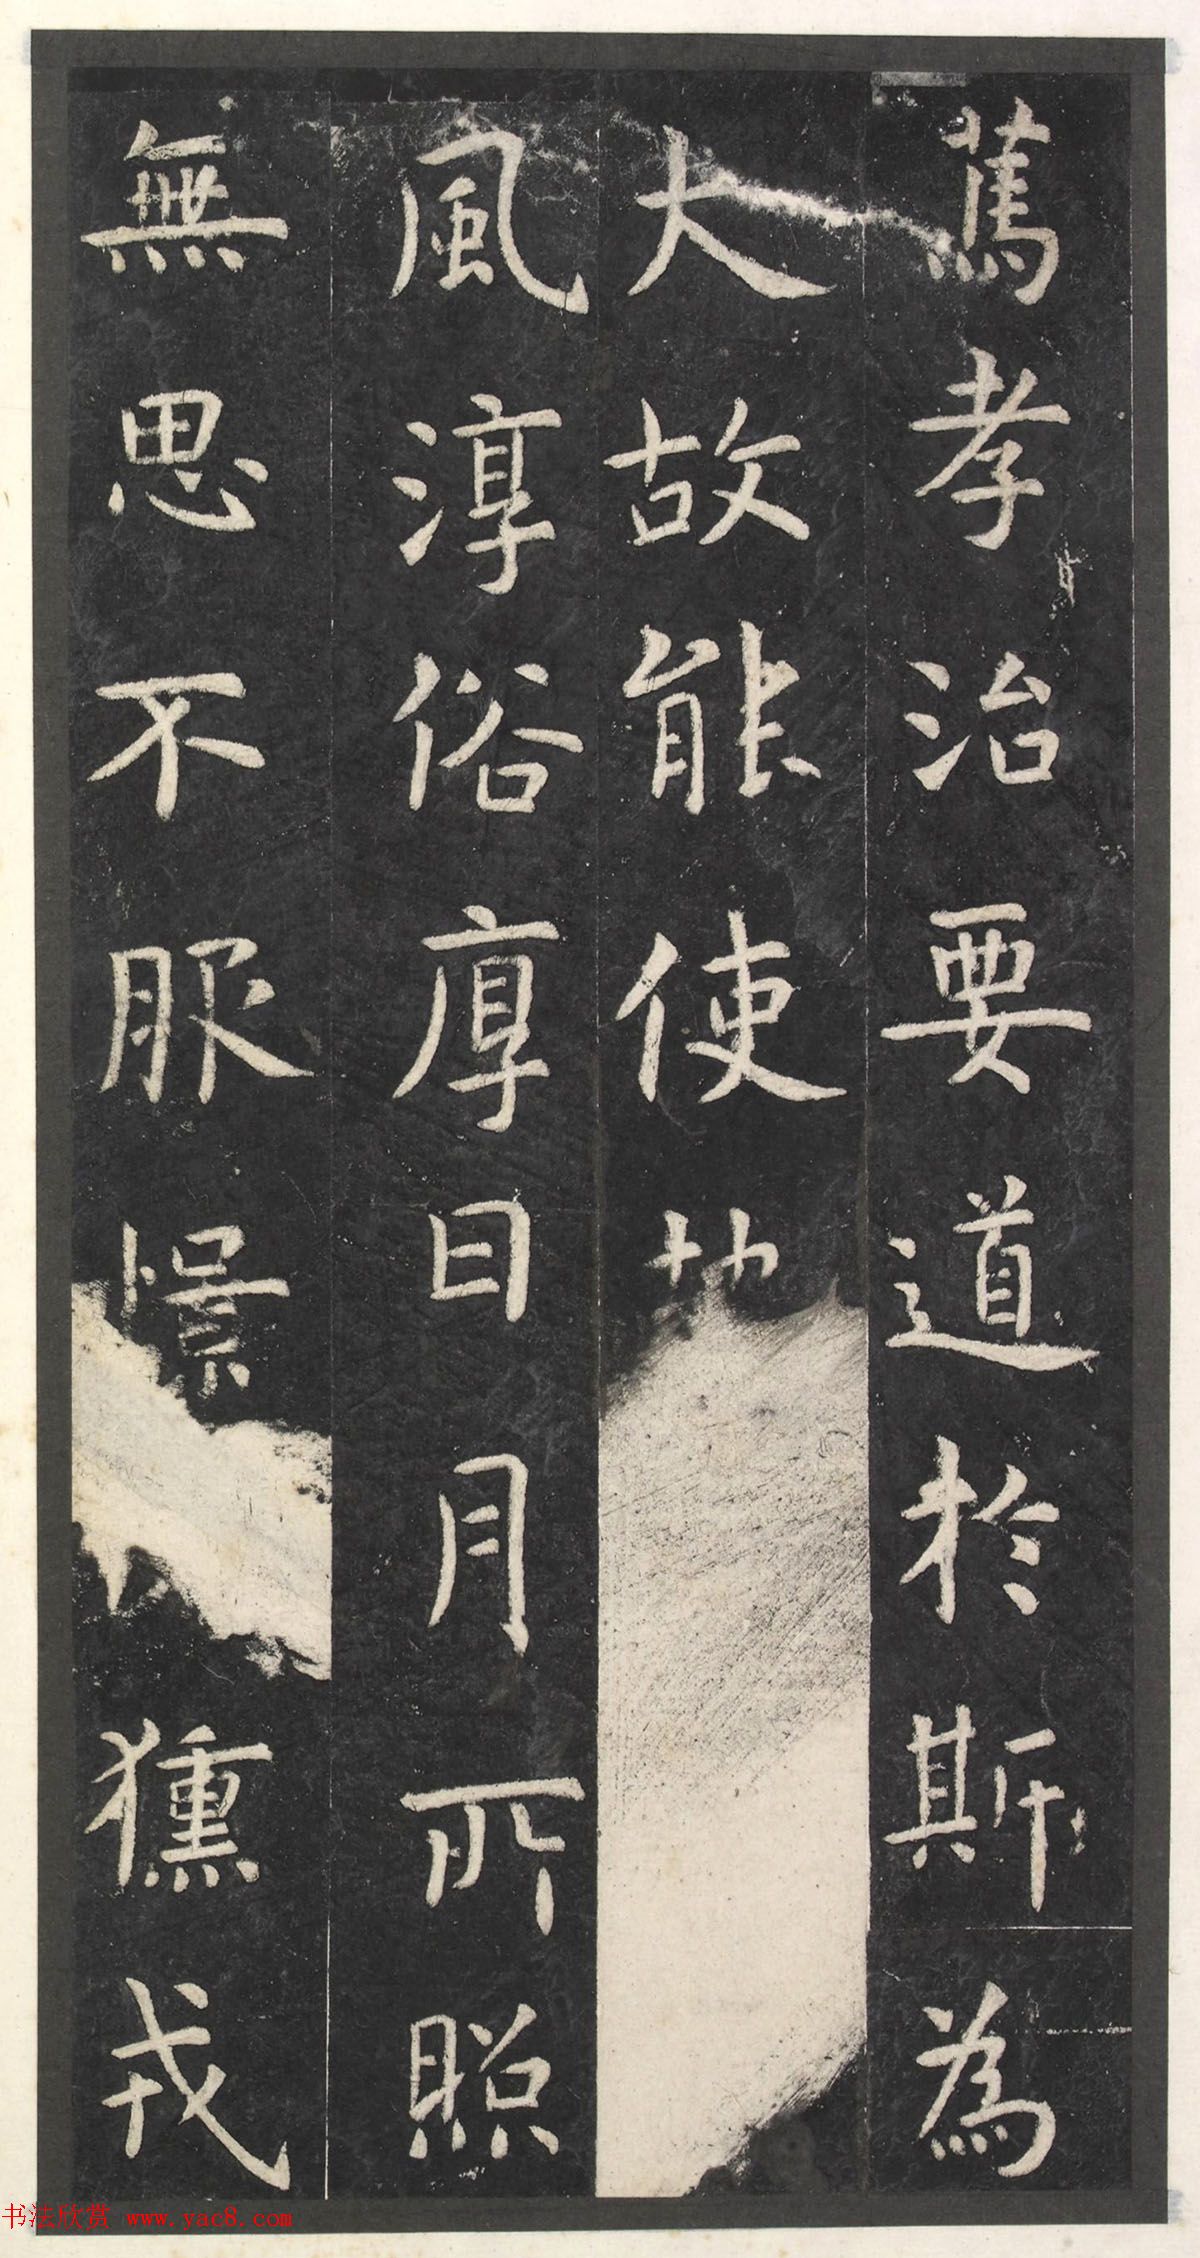 篤孝治要道於斯為
大故能使地
風淳俗厚日月所照
無思不服憬
獯戎
书法欣赏 www.yac8.com